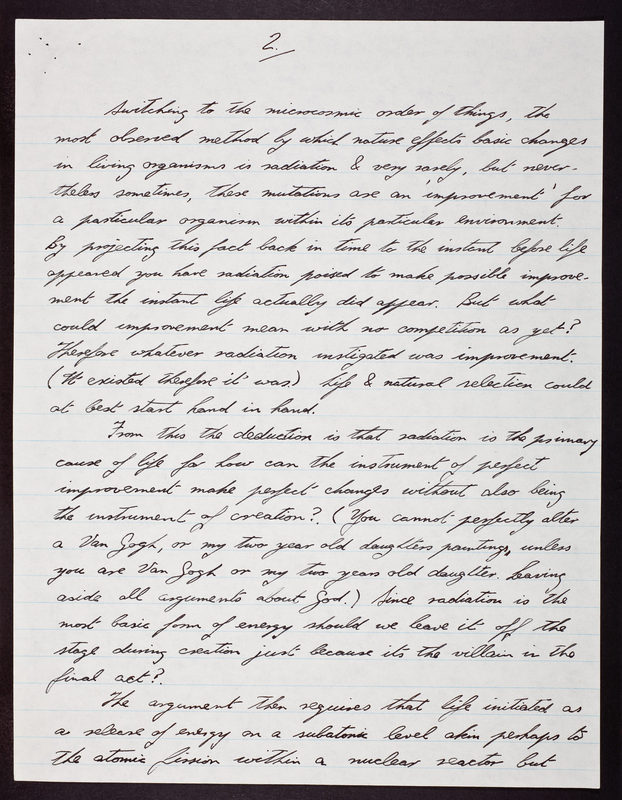 2.
Switching to the microcosmic order of things, the
most observed method by which nature effects basic changes
in living organisms is radiation & very rarely, but never-
theless sometimes, these mutations are an 'improvement' for
a particular organism within its particular environment.
By projecting this fact back in time to the instant before life
appeared you have radiation poised to make possible improve-
ment the instant life actually did appear. But what
could improvement mean with no competition as yet?
Therefore whatever radiation instigated was improvement.
(It existed therefore it was.) Life & natural selection could
at best start hand in hand.
From this the deduction is that radiation is the primary
cause of life for how can the instrument of perfect
improvement make perfect changes without also being
the instrument of creation? (You cannot perfectly alter
a Van Gogh, or my two year old daughters paintings, unless
you are Van Gogh or my two years old daughter. Leaving
aside all arguments about God.) Since radiation is the
most basic form of energy should we leave it off the
stage during creation just because its the villain in the
final act?
The argument then requires that life initiated as
a release of energy on a subatomic level akin perhaps to
the atomic fission within a nuclear reactor but